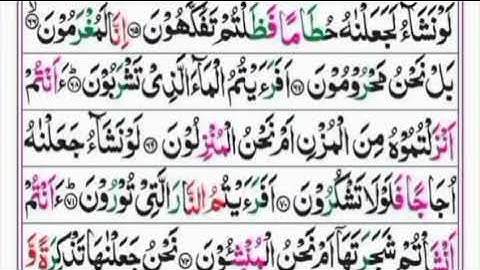 لَوْ نَشَآءُ لَجَعَلْنٰهُ حُطَامًا فَظَلْتُمْ تَفَكَّهُوْنَ ﴿۶۵﴾ اِنَّا لَمُغْرَمُوْنَ ﴿۶۶﴾
بَلْ نَحْنُ مَحْرُوْمُوْنَ ﴿۶۷﴾ اَفَرَءَيْتُمُ الْمَآءَ الَّذِيْ تَشْرَبُوْنَ ﴿۶۸﴾ ءَاَنْتُمْ
اَنْزَلْتُمُوْهُ مِنَ الْمُزْنِ اَمْ نَحْنُ الْمُنْزِلُوْنَ ﴿۶۹﴾ لَوْ نَشَآءُ جَعَلْنٰهُ
اُجَاجًا فَلَوْلَا تَشْكُرُوْنَ ﴿۷۰﴾ اَفَرَءَيْتُمُ النَّارَ الَّتِيْ تُوْرُوْنَ ﴿۷۱﴾ ءَاَنْتُمْ
اَنْشَاْتُمْ شَجَرَتَهَآ اَمْ نَحْنُ الْمُنْشِـُٔوْنَ ﴿۷۲﴾ نَحْنُ جَعَلْنٰهَا تَذْكِرَةً وَّ